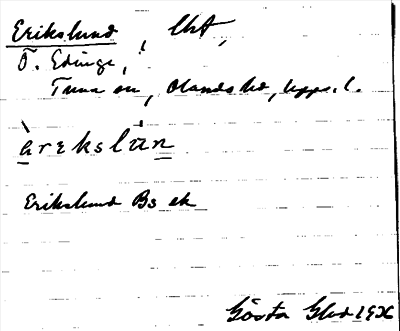 Erikslund, lht,
Ö. Edinge,
Tuna sn, Olands hd, Upps. l.
èrekslùn
Erikslund Bs ek
Gösta Glad 1936